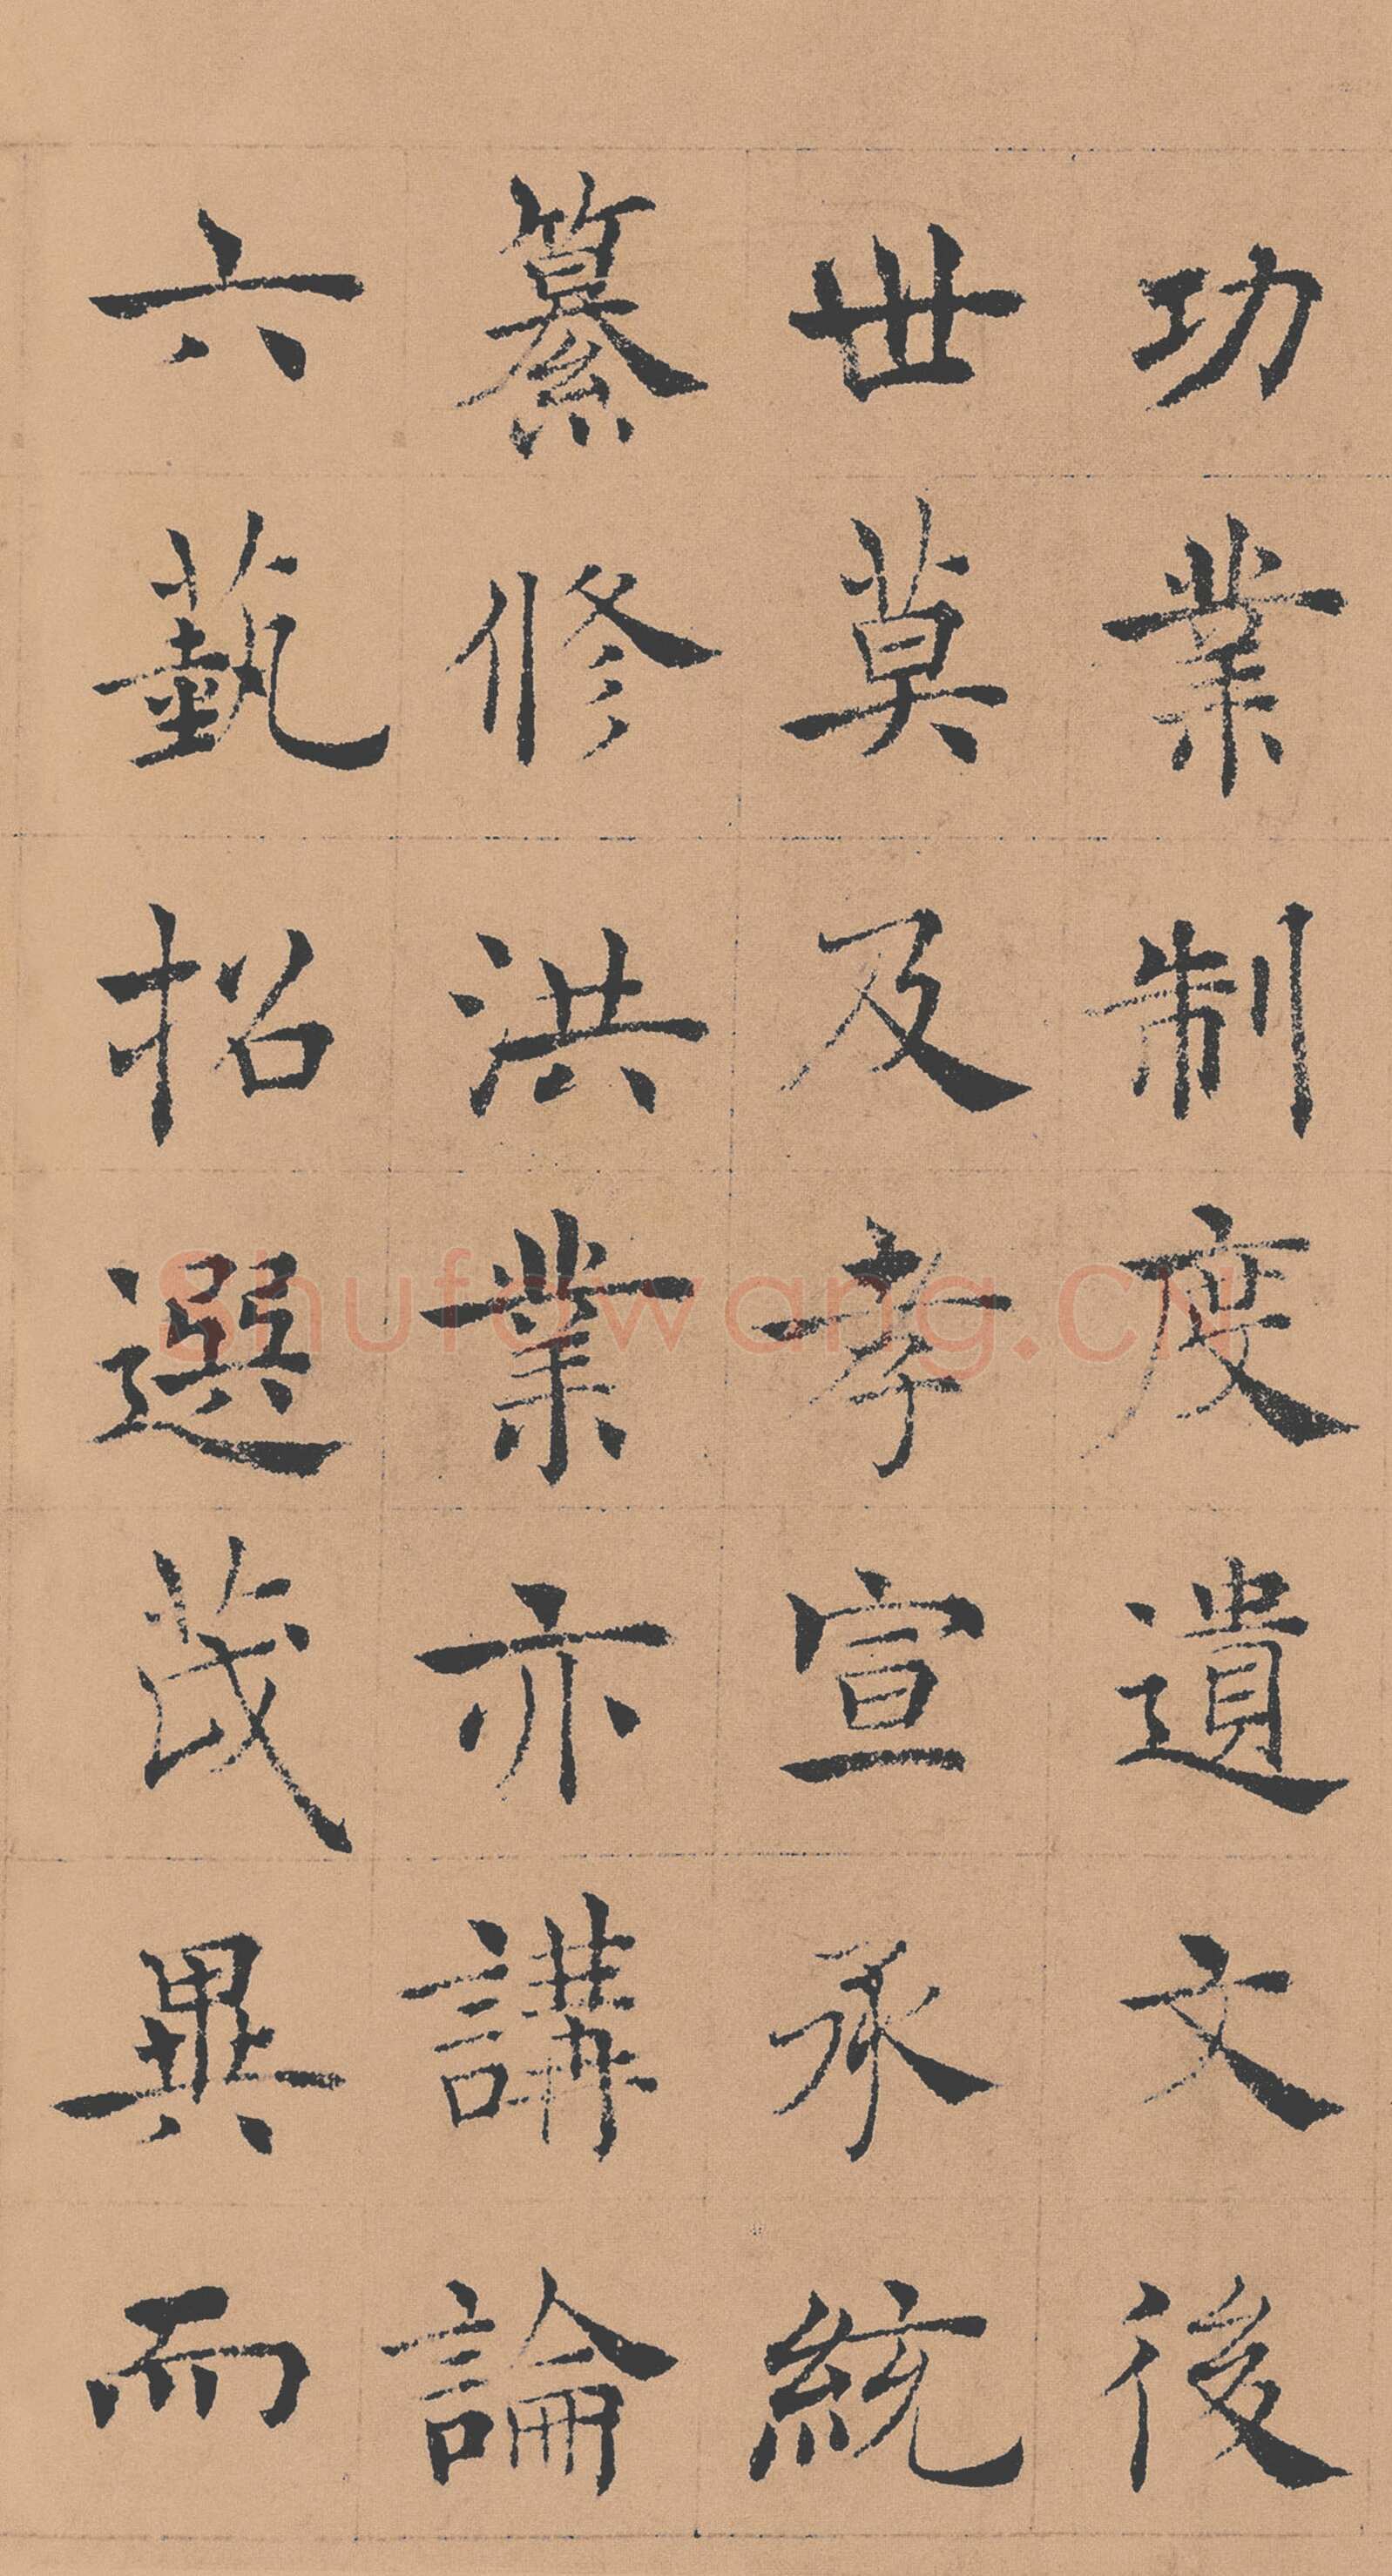 功業制度遺文後
世莫及孝宣承統
纂修洪業亦講論
六藝招選茂異而
Shufawang.CN